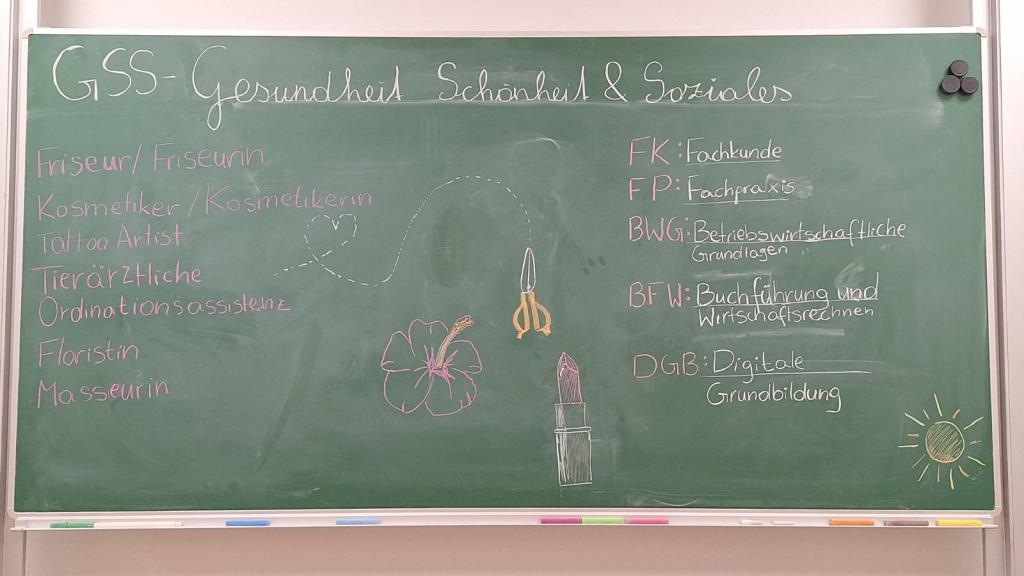 GSS - Gesundheit Schönheit & Soziales
Friseur/ Friseurin
Kosmetiker /Kosmetikerin
Tattoo Artist
Tierärztliche
Ordinationsassistenz
Floristin
Masseurin
FK: Fachkunde
FP: Fachpraxis
BWG: Betriebswirtschaftliche
Grundlagen
BFW: Buchführung und
Wirtschaftsrechnen
DGB: Digitale
Grundbildung